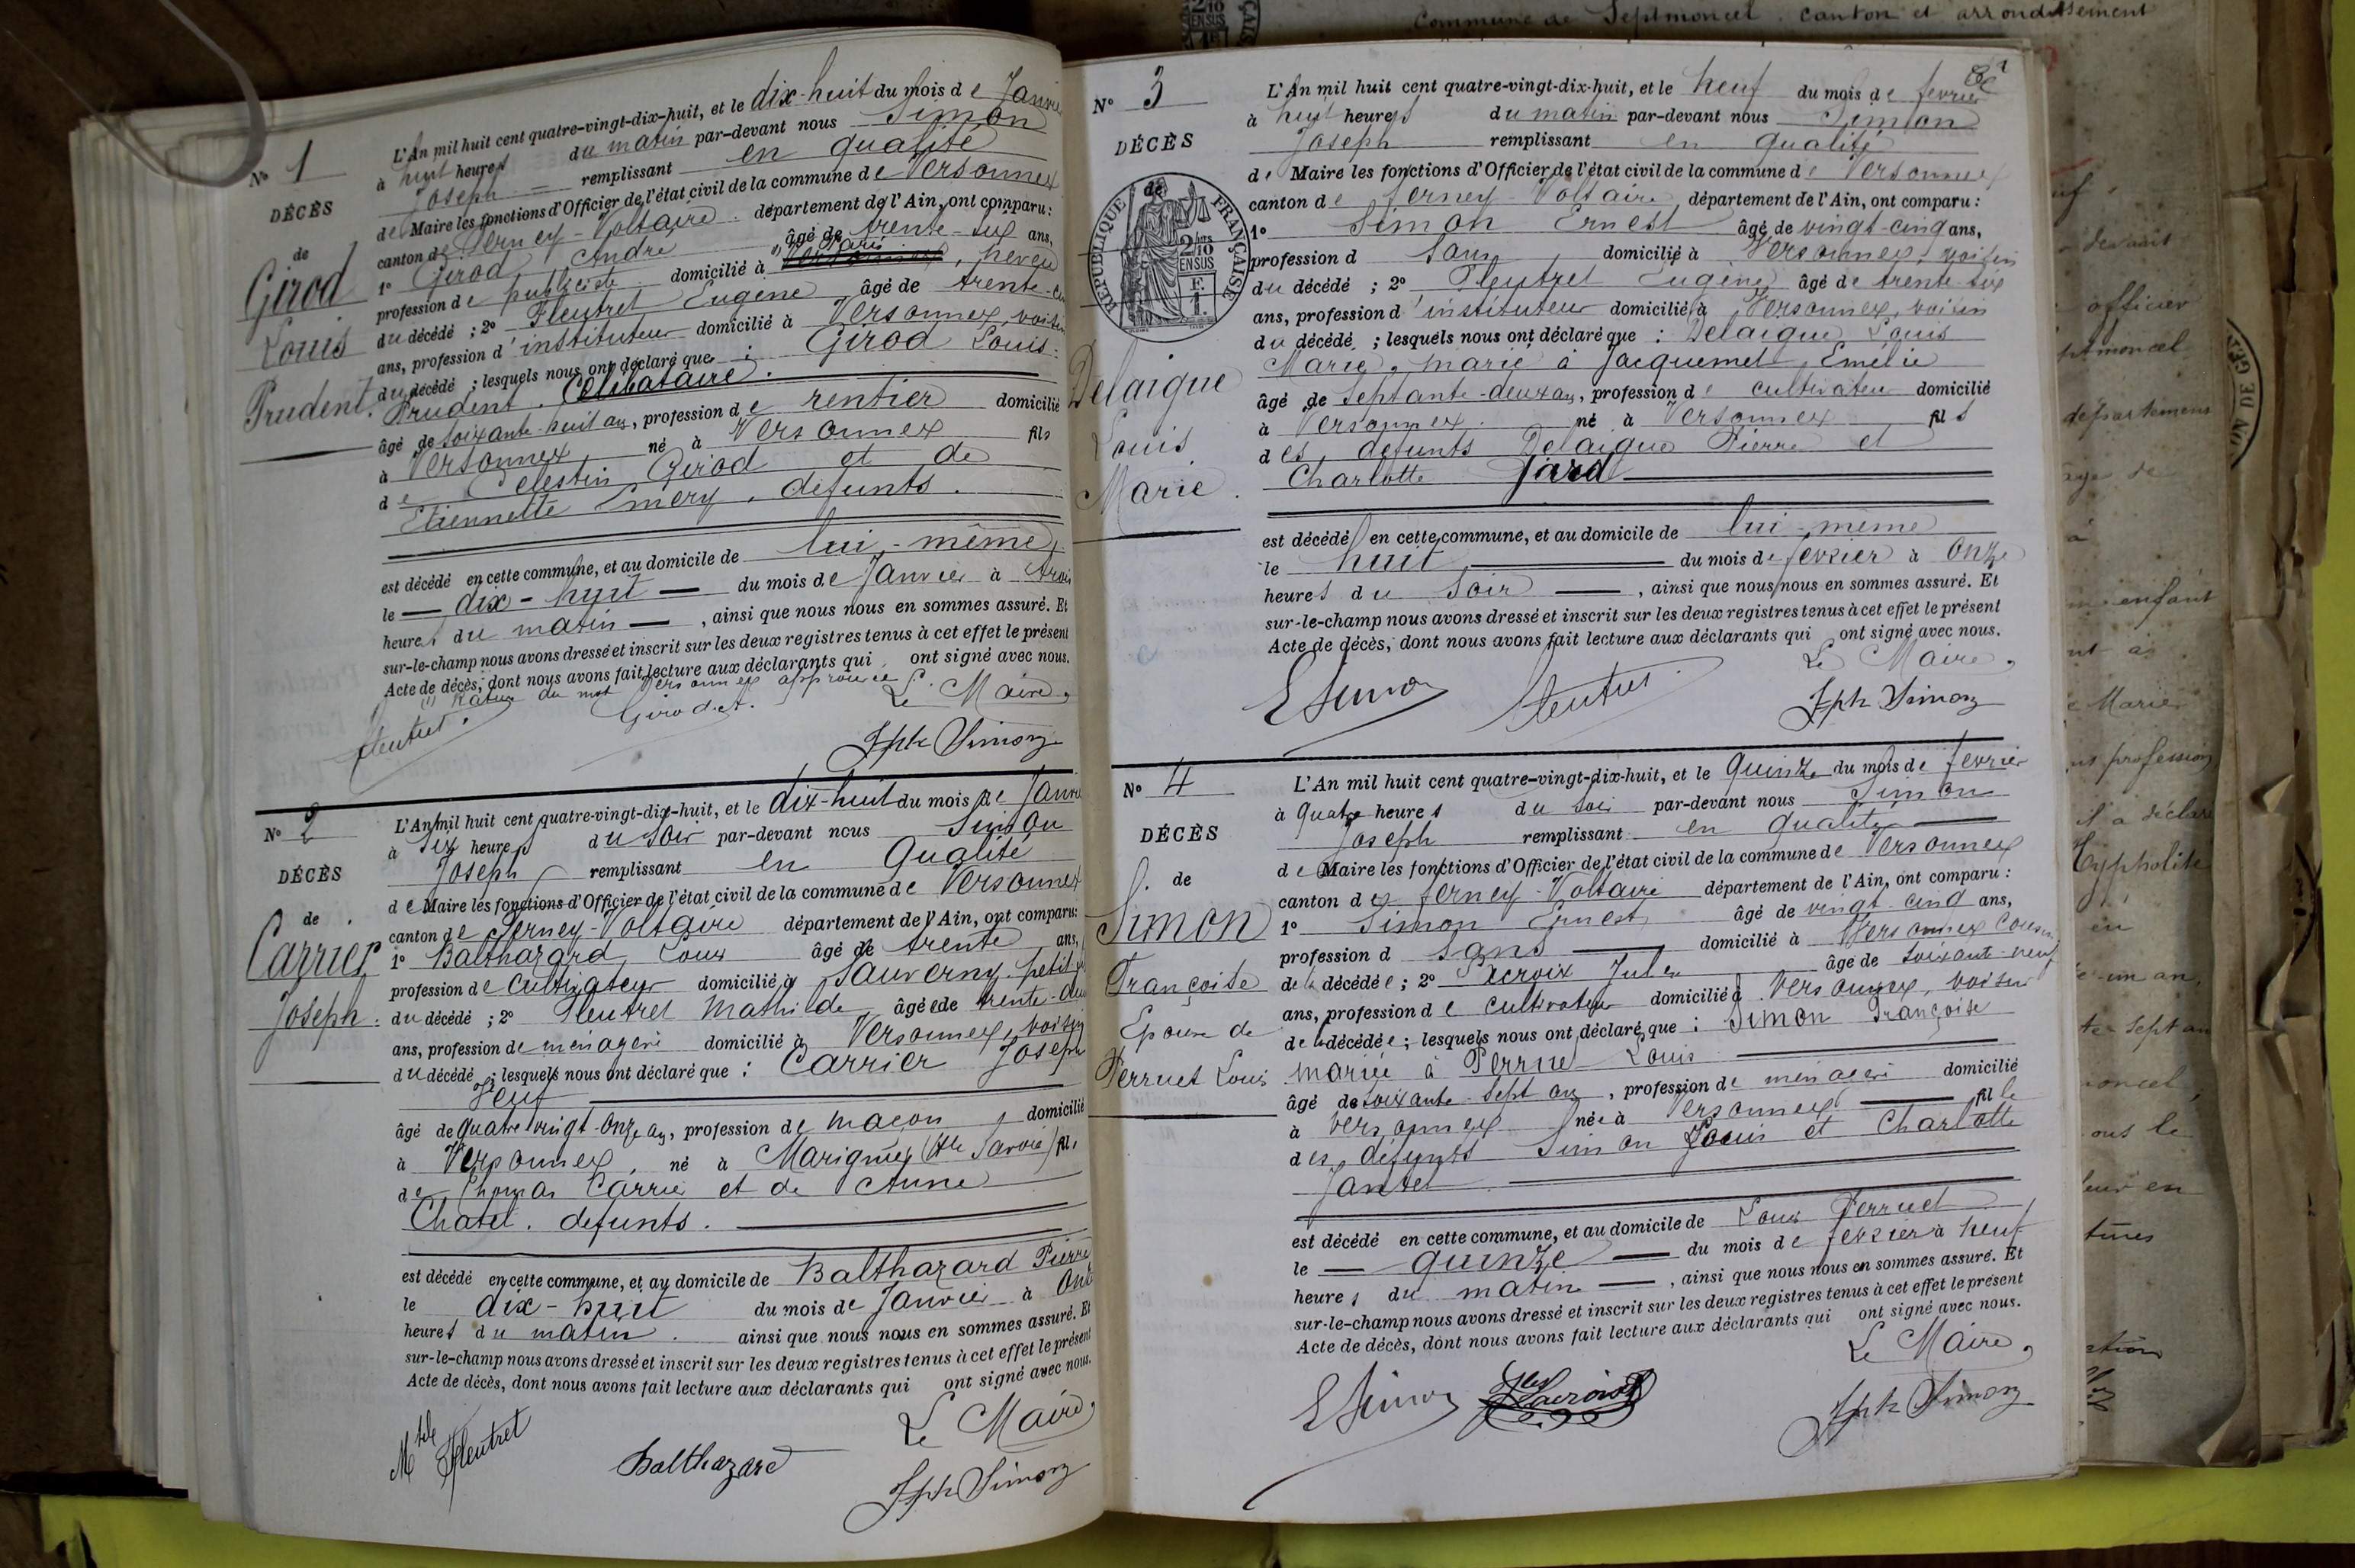 N° 1
DÉCÈS
de
Girod
Louis
Prudent.
L'An mil huit cent quatre-vingt-dix-huit, et le dix-huit du mois de Janvie
à huit heures du matin par-devant nous Simon
Joseph remplissant en qualité
de Maire les fonctions d'Officier de l'état civil de la commune de Versonnex
canton de Ferney-Voltaire département de l'Ain, ont comparu:
1° Girod André âgé de trente-six ans,
profession de publiciste domicilié à (1) Paris Versonnex, neveu
du décédé ; 2° Fleutret Eugène âgé de trente-
ans, profession d'instituteur domicilié à Versonnex, voisin
du décédé ; lesquels nous ont déclaré que : Girod Louis
Prudent. Célibataire.
âgé de soixante-huit ans, profession de rentier domicilié
à Versonnex né à Versonnex fils
de Célestin Girod et de
Etiennette Emery, défunts.
est décédé en cette commune, et au domicile de lui-même
le dix-huit du mois de Janvier à trois
heures du matin, ainsi que nous nous en sommes assuré. Et
sur-le-champ nous avons dressé et inscrit sur les deux registres tenus à cet effet le présent
Acte de décès, dont nous avons fait lecture aux déclarants qui ont signé avec nous.
(1) Rature du mot Versonnex approuvée Le Maire,
Fleutret Girod A. Jph Simon
N° 2
DÉCÈS
de
Carrier
Joseph.
L'An mil huit cent quatre-vingt-dix-huit, et le dix-huit du mois de Janvi
à six heures du soir par-devant nous Simon
Joseph remplissant en Qualité
de Maire les fonctions d'Officier de l'état civil de la commune de Versonnex
canton de Ferney-Voltaire département de l'Ain, ont comparu:
1° Balthazard Louis âgé de trente ans,
profession de Cultivateur domicilié à Sauverny petit
du décédé ; 2° Fleutret Mathilde âgée de trente-
ans, profession de ménagère domicilié à Versonnex, voisin
du décédé ; lesquels nous ont déclaré que : Carrier Joseph
Veuf
âgé de quatre vingt-onze ans, profession de maçon, domicilié
à Versonnex, né à Marignier (Hte Savoie) fils
de Thomas Carrier et de Anne
Chatel. défunts.
est décédé en cette commune, et au domicile de Balthazard Pierre
le dix-huit du mois de Janvier à onze
heures du matin. ainsi que nous nous en sommes assuré. Et
sur-le-champ nous avons dressé et inscrit sur les deux registres tenus à cet effet le présent
Acte de décès, dont nous avons fait lecture aux déclarants qui ont signé avec nous.
Le Maire,
Mtde Fleutret Balthazard Jph Simon
N° 3
DÉCÈS
de
RÉPUBLIQUE FRANÇAISE
2/10 EN SUS
Delaigue
Louis
Marie.
L'An mil huit cent quatre-vingt-dix-huit, et le neuf du mois de février
à huit heures du matin par-devant nous Simon
Joseph remplissant en qualité
de Maire les fonctions d'Officier de l'état civil de la commune de Versonnex
canton de Ferney-Voltaire département de l'Ain, ont comparu :
1° Simon Ernest âgé de vingt-cinq ans,
profession d sans domicilié à Versonnex, voisin
du décédé ; 2° Fleutret Eugène âgé de trente-six
ans, profession d'instituteur domicilié à Versonnex, voisin
du décédé ; lesquels nous ont déclaré que : Delaigue Louis
Marie, marié à Jacquemet Emélie
âgé de septante-deux ans, profession de cultivateur domicilié
à Versonnex. né à Versonnex fils
des défunts Delaigue Pierre et
Charlotte Jard
est décédé en cette commune, et au domicile de lui-même
le huit du mois de février à onze
heures du soir, ainsi que nous nous en sommes assuré. Et
sur-le-champ nous avons dressé et inscrit sur les deux registres tenus à cet effet le présent
Acte de décès, dont nous avons fait lecture aux déclarants qui ont signé avec nous.
Le Maire,
E Simon Fleutret Jph Simon
N° 4
DÉCÈS
de
Simon
Françoise
Epouse de
Perruet Louis
L'An mil huit cent quatre-vingt-dix-huit, et le Quinze du mois de février
à Quatre heures du soir par-devant nous Simon
Joseph remplissant en qualité
de Maire les fonctions d'Officier de l'état civil de la commune de Versonnex
canton de Ferney-Voltaire département de l'Ain, ont comparu :
1° Simon Ernest âgé de vingt-cinq ans,
profession d sans domicilié à Versonnex cousin
de la décédée ; 2° Lacroix Jules âgé de soixante-neuf
ans, profession de cultivateur domicilié à Versonnex, voisin
de la décédée ; lesquels nous ont déclaré que : Simon Françoise
mariée à Perruet Louis
âgé de soixante-sept ans, profession de ménagère domicilié
à Versonnex née à Versonnex fille
des défunts Simon Louis et Charlotte
Jantet
est décédé en cette commune, et au domicile de Louis Perruet
le quinze du mois de février à neuf
heures du matin, ainsi que nous nous en sommes assuré. Et
sur-le-champ nous avons dressé et inscrit sur les deux registres tenus à cet effet le présent
Acte de décès, dont nous avons fait lecture aux déclarants qui ont signé avec nous.
Le Maire,
E Simon Jles Lacroix Jph Simon
Commune de Septmoncel. canton et arrondissement
devant
officier
septmoncel
département
enfant
Marie
profession
a déclaré
Hyppolite
un an
sept an